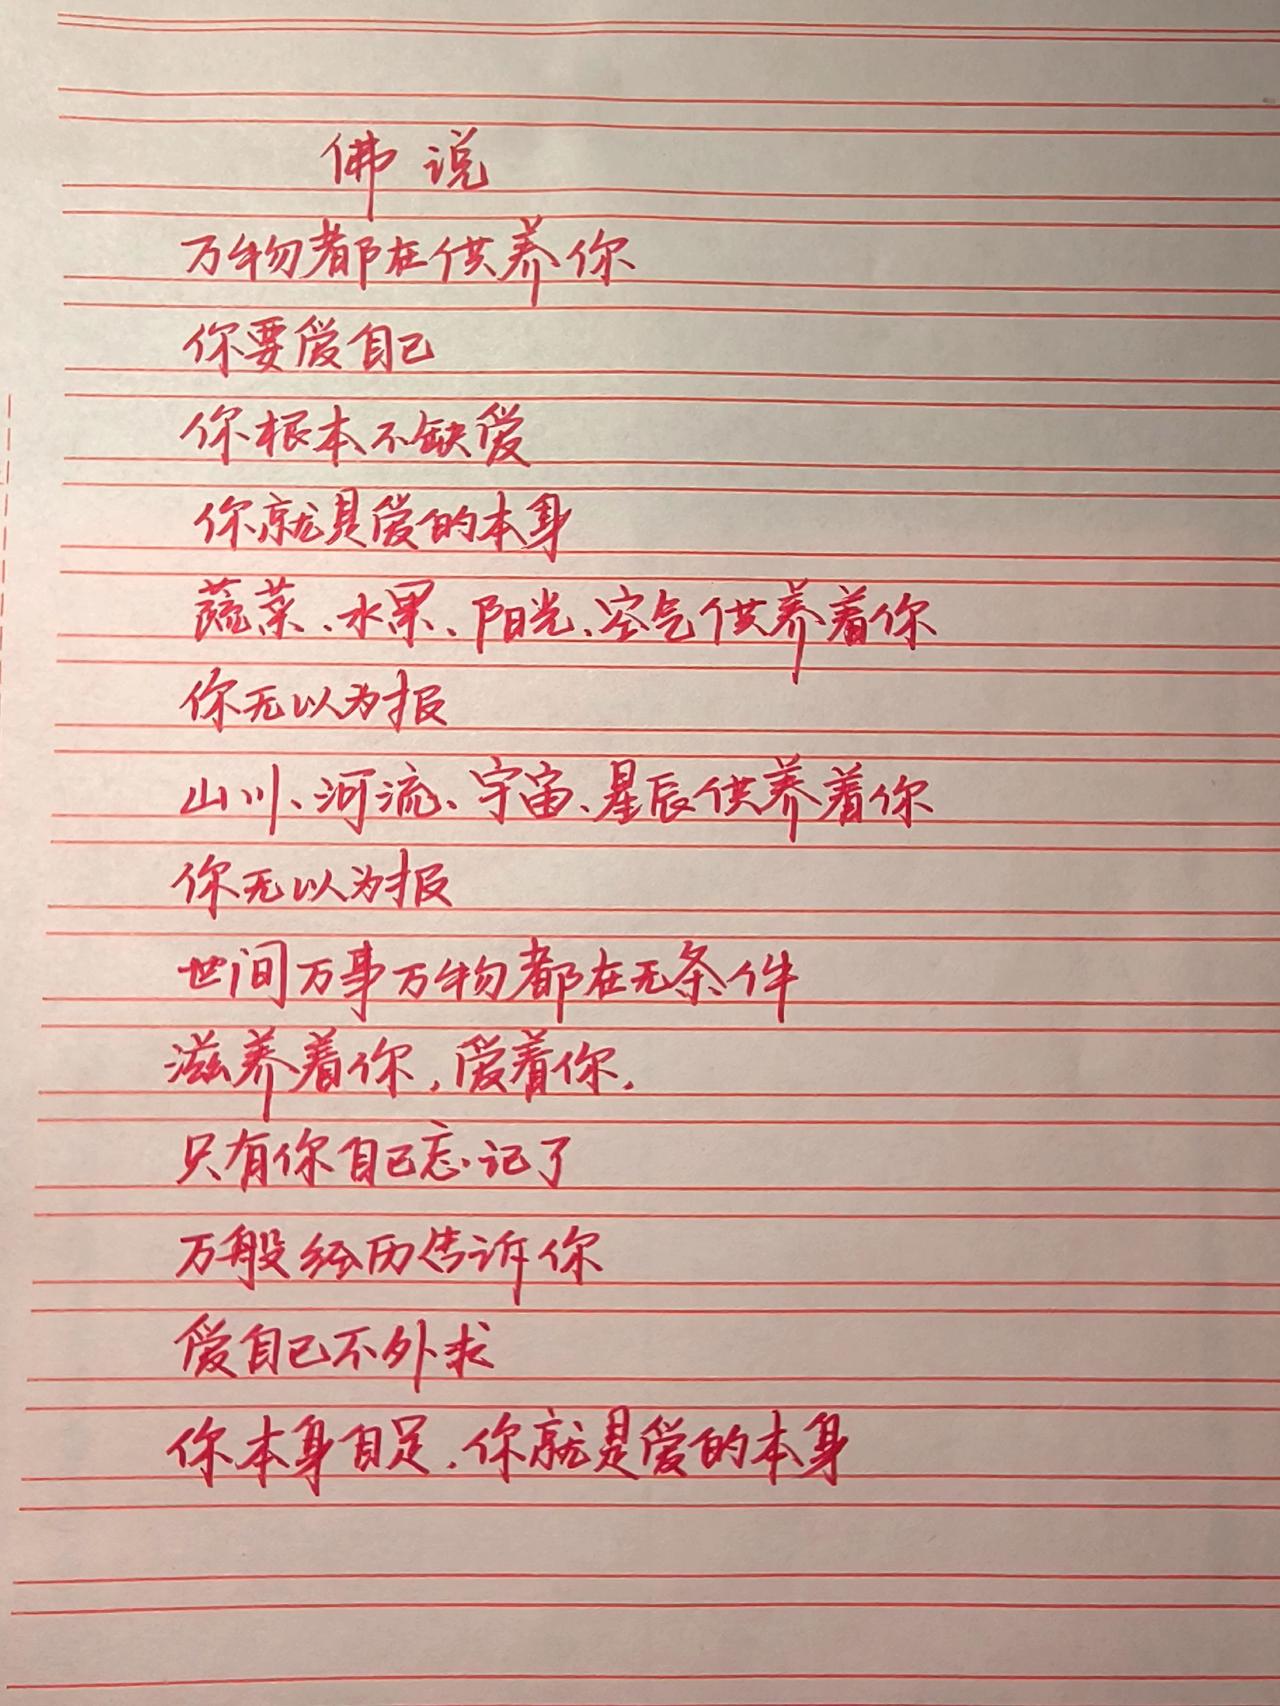 佛说
万物都在供养你
你要爱自己
你根本不缺爱
你就是爱的本身
蔬菜、水果、阳光、空气供养着你
你无以为报
山川、河流、宇宙、星辰供养着你
你无以为报
世间万事万物都在无条件
滋养着你，爱着你.
只有你自己忘记了
万般经历告诉你
爱自己不外求
你本身自足.你就是爱的本身